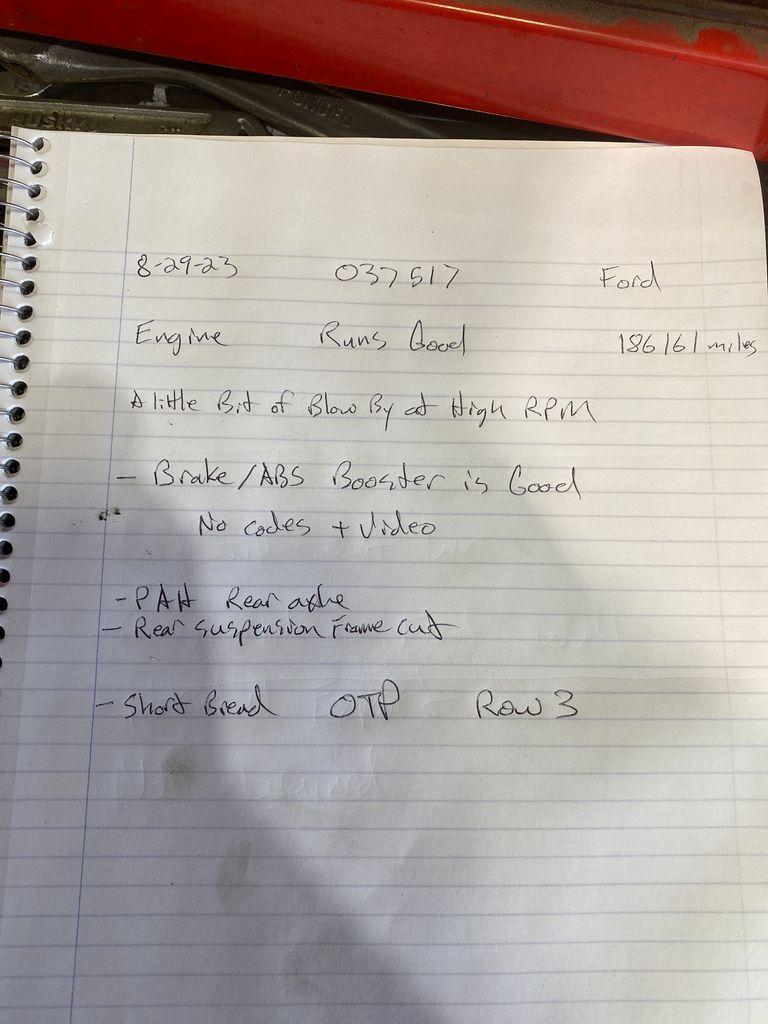 FORGED
HUSKY
8-29-23 037517 Ford
Engine Runs Good 186161 miles
A little Bit of Blow By at High RPM
- Brake/ABS Booster is Good
No codes + Video
- PAH Rear axle
- Rear suspension Frame cut
- Short Bread OTP Row 3